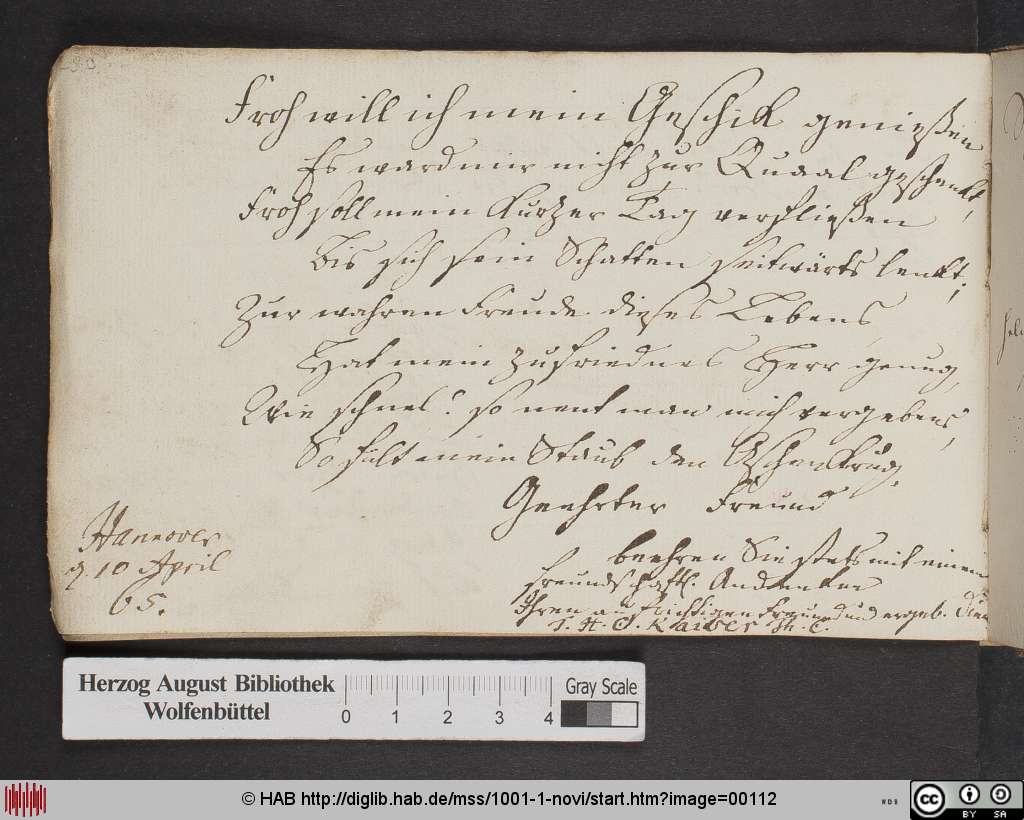 Froh will ich mein Geschik genießen
Es ward mir nicht zur Quaal geschenkt,
Froh soll mein kurtzer Tag verfließen
Bis sich sein Schatten seitwärts lenkt;
Zur wahren Freude dieses Lebens
Hat mein zufriednes Herz genug,
Wie schnel! so nent man mich vergebens,
So fült mein Staub den Aschenkrug.
Geehrter Freund
beehren Sie stets mit einem
freundschaftl. Andenken
Ihren aufrichtigen Freund und ergeb. Dien
J. H. C. Kaiser Th. C.
Hannover
d. 10 April
65.
Herzog August Bibliothek
Wolfenbüttel
0 1 2 3 4
Gray Scale
© HAB http://diglib.hab.de/mss/1001-1-novi/start.htm?image=00112
cc BY SA